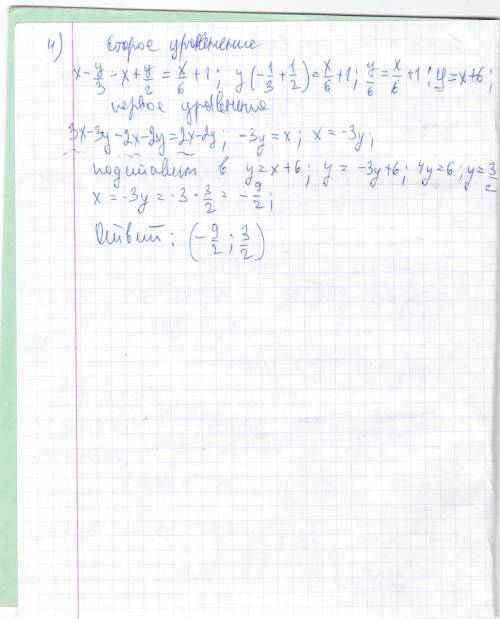 4) Второе уравнение
x - y/3 = x + y/2 = x/6 + 1; y(-1/3 + 1/2) = x/6 + 1; y/6 = x/6 + 1; y = x + 6;
первое уравнения
3x - 3y - 2x - 2y = 2x - 2y; -3y = x; x = -3y;
подставим в y = x + 6; y = -3y + 6; 4y = 6; y = 3/2
x = -3y = -3 · 3/2 = -9/2;
Ответ: (-9/2; 3/2)